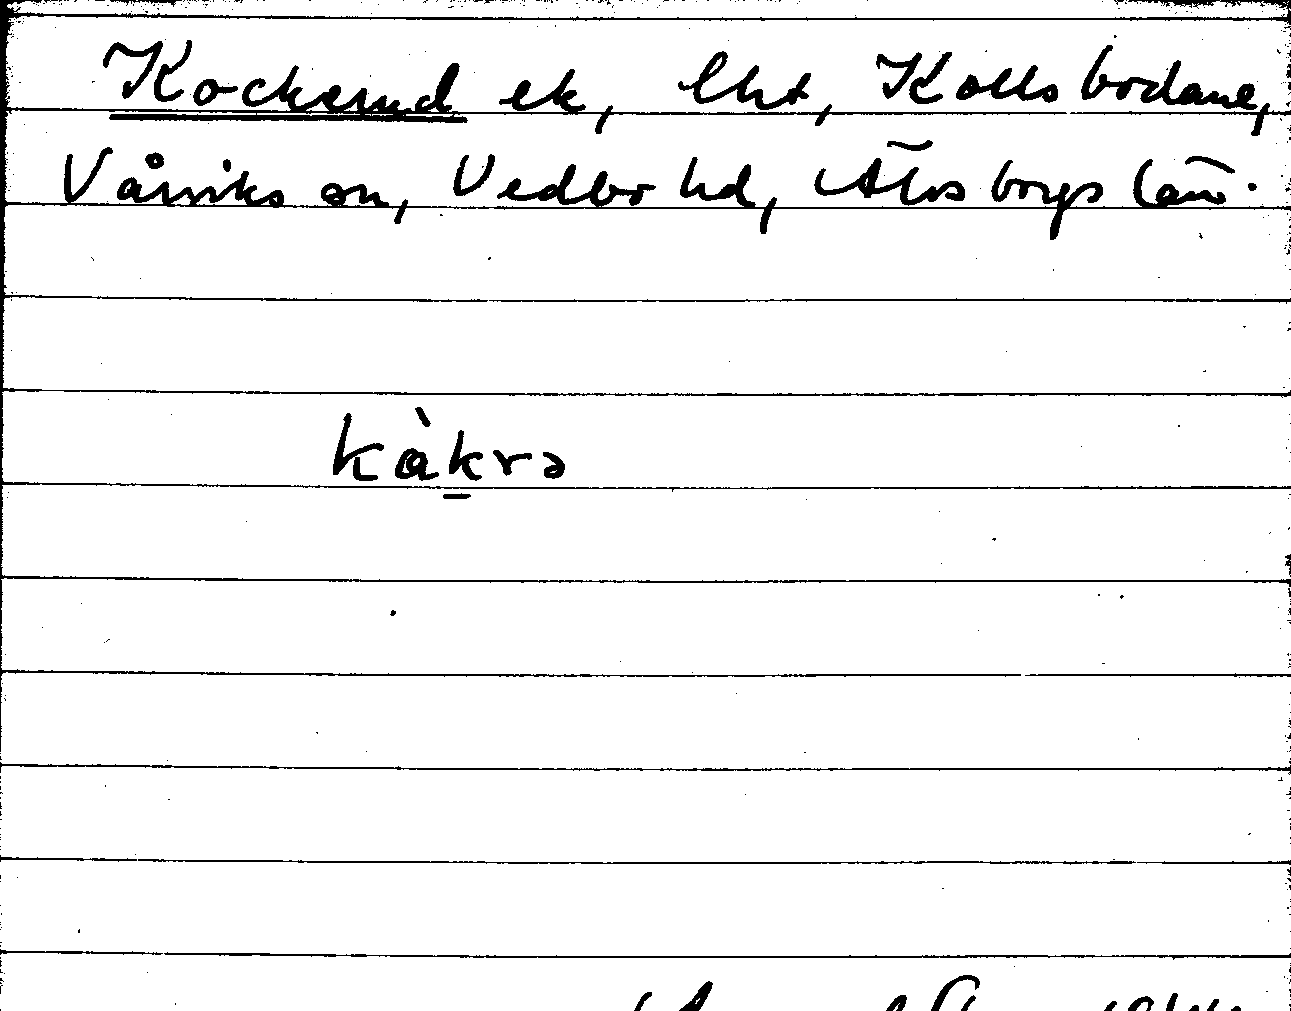 Kockerud ek, lht, Kollsbodane,
Vårviks sn, Vedbo hd, Älvsborgs län.
kàkrə